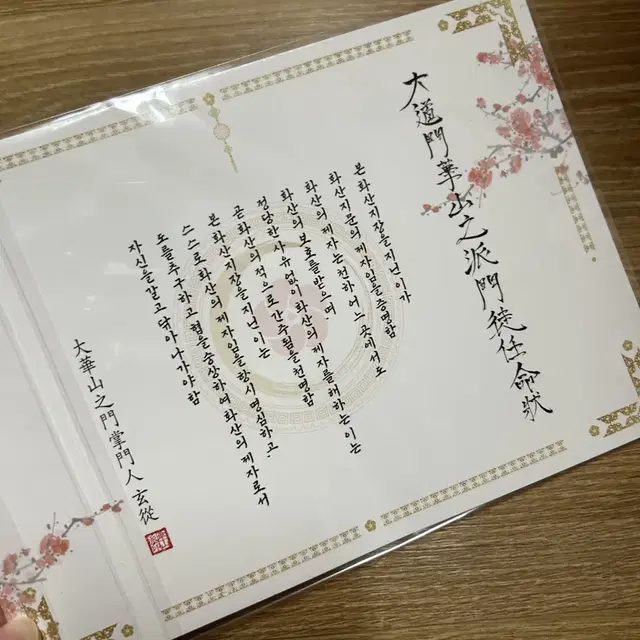 大道門華山之派門徒任命狀
본 화산지장을 지닌 이가
화산지문의 제자임을 증명함
화산의 제자는 천하 어느 곳에서도
화산의 보호를 받으며
정당한 사유 없이 화산의 제자를 해하는 이는
곧 화산의 적으로 간주됨을 천명함
본 화산지장을 지닌 이는
스스로 화산의 제자임을 항시 명심하고
도를 추구하고 협을 숭상하여 화산의 제자로서
자신을 갈고 닦아 나가야 함
大華山之門掌門人 玄從